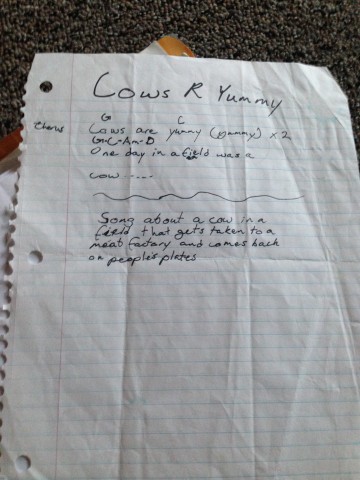 Cows R Yummy
G C
Chorus Cows are yummy (yummy) x 2
G-C-Am-D
One day in a field was a
cow -----
Song about a cow in a
field that gets taken to a
meat factory and comes back
on people's plates